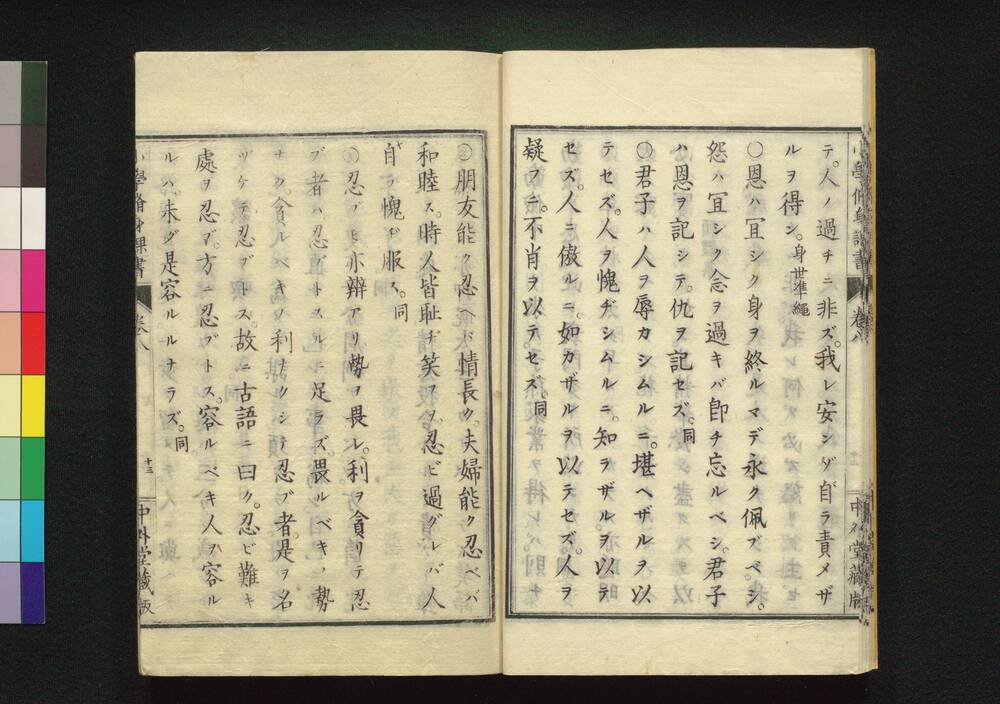 テ。人ノ過チニ非ズ。我レ安ンダ自ラ責メザ
ルヲ得ン。身世準繩
〇恩ハ冝シク身ヲ終ルマデ永ク佩ブベシ。
怨ハ冝シク念ヲ過キバ卽チ忘ルベシ。君子
ハ恩ヲ記シテ。仇ヲ記セズ。同
〇君子ハ人ヲ辱カシムルニ。堪ヘザルヲ以
テセズ。人ヲ愧ヂシムルニ。知ラザルヲ以テ
セズ。人ニ傲ルニ。如カザルヲ以テセズ。人ヲ
疑フニ。不肖ヲ以テセズ。同
〇朋友能ク忍ベバ情長ク。夫婦能ク忍ベバ
和睦ス。時人皆恥ヂ笑ヲ。忍ビ過グレバ人
自ラ愧ヂ服ス。同
〇忍ブモ亦辨アリ勢ヲ畏レ。利ヲ貪リテ忍
ブ者ハ忍トスルニ足ラズ。畏ルベキノ勢
ナク。貪ルベキノ利ナクシテ忍ブ者。是ヲ名
ヅケテ忍ブトス。故ニ古語ニ曰ク。忍ビ難キ
處ヲ忍ブ。方ニ忍ブトス。容ルベキ人ヲ容ル
ルハ。未ダ是容ルルナラズ。同
小學脩身課書
卷八
十三
中外堂藏版